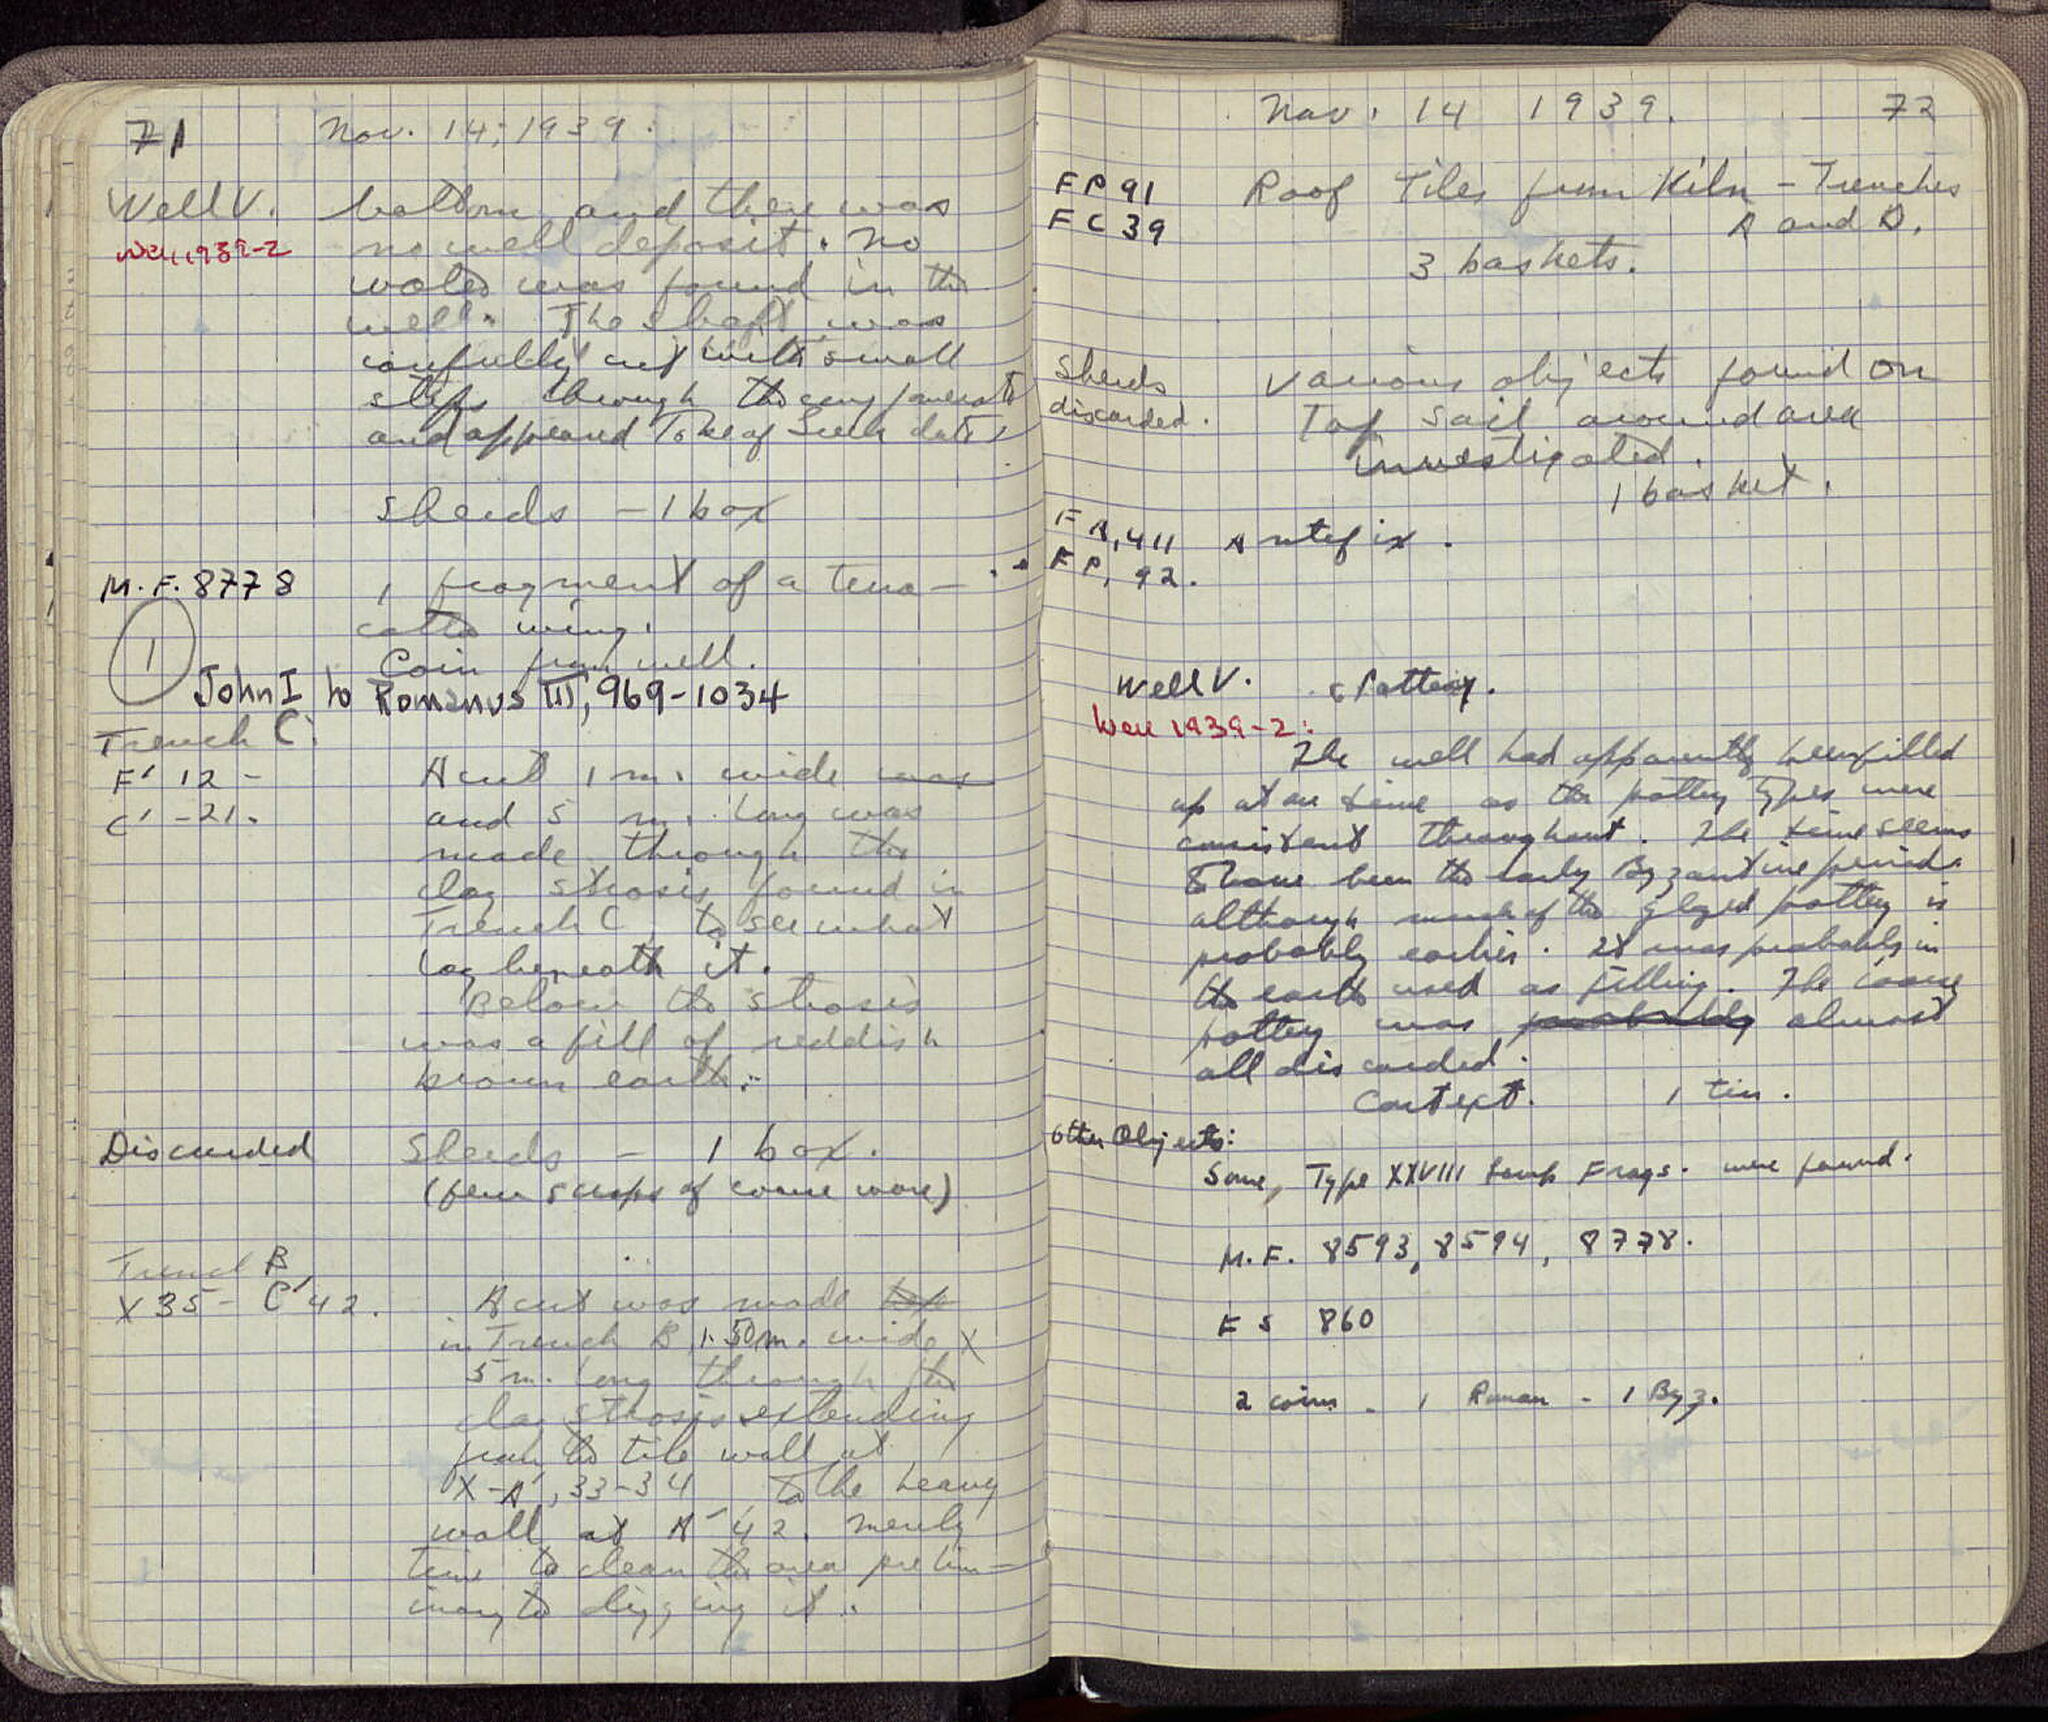 71 Nov. 14, 1939.
Well V. bottom and there was
Well 1939-2 no well deposit. No
water was found in the
well. The shaft was
carefully cut with small
steps through the conglomerate
and appeared to be of Greek date.
Sherds - 1 box
M.F. 8778 1 fragment of a terra-
cotta wing.
1 Coin from well.
John I to Romanus III, 969-1034
Trench C:
F' 12 - A cut 1 m. wide was
C' -21. and 5 m. long was
made through the
clay strosis found in
Trench C, to see what
lay beneath it.
Below the strosis
was a fill of reddish
brown earth.
Discarded Sherds - 1 box.
(few scraps of coarse ware)
Trench B
X 35 - C' 42. A cut was made
in Trench B, 1.50 m. wide X
5 m. long through the
clay strosis extending
from the tile wall at
X-A', 33-34 to the heavy
wall at A' 42. Merely
time to clean the area prelim-
inary to digging it.
Nov. 14 1939. 72
FP 91 Roof Tiles from Kiln - Trenches
FC 39 A and D.
3 baskets.
Sherds various objects found on
discarded. Top soil around area
investigated.
1 basket.
FA, 411 Antefix.
FP, 92.
Well V. Pottery.
Well 1939-2:
The well had apparently been filled
up at one time as the pottery types were
consistent throughout. The time seems
to have been the early Byzantine period
although much of the glazed pottery is
probably earlier. It was probably in
the earth used as filling. The coarse
pottery was probably almost
all discarded.
Context. 1 tin.
Other Objects:
Some, Type XXVIII Lamp Frags. were found.
M.F. 8593, 8594, 8778.
FS 860
2 coins - 1 Roman - 1 Byz.